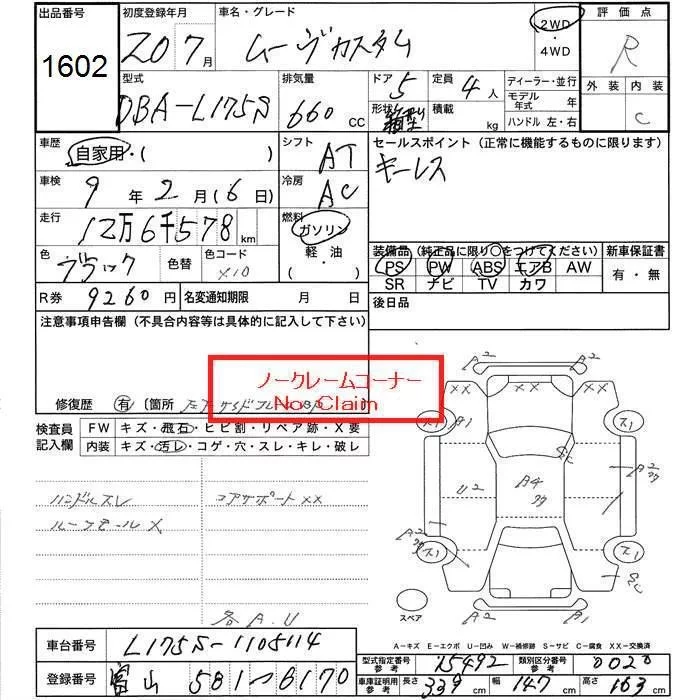 出品番号 初度登録年月 車名・グレード 評価点
1602 20 7月 ムーヴカスタム 2WD・4WD R
型式 排気量 ドア 5 定員 4人 ディーラー・並行 外装 内装
DBA-L175S 660 cc 形状 箱型 積載 kg モデル年式 年 C
ハンドル 左・右
車歴 自家用・( ) シフト AT セールスポイント (正常に機能するものに限ります)
車検 9年2月(6日) 冷房 AC キーレス
走行 12万6千578km 燃料 ガソリン・軽油・( )
色 ブラック 色替 色コード X10 装備品 (純正品に限り○をつけてください) 新車保証書
PS PW ABS エアB AW 有・無
SR ナビ TV カワ
R券 9260円 名変通知期限 月 日 後日品
注意事項申告欄 (不具合内容等は具体的に記入して下さい)
ノークレームコーナー
No Claim
修復歴 有 〔箇所
検査員記入欄 FW キズ・飛石・ヒビ割・リペア跡・X要
内装 キズ・汚レ・コゲ・穴・スレ・キレ・破レ
ハンドルスレ コアサポートXX
ルーフモールX
各A.U
A2 A2
XX XX
ス1 A1 ス1
A2
U2 A4
A2
ス1 ス1
スペア
A2 A1
A-キズ E-エクボ U-凹み W-補修跡 S-サビ C-腐食 XX-交換済
車台番号 L175S-1105114 型式指定番号 参考 15492 類別区分番号 参考 0020
登録番号 富山 581 6170 車庫証明用 参考 長さ 339cm 幅 147cm 高さ 163cm